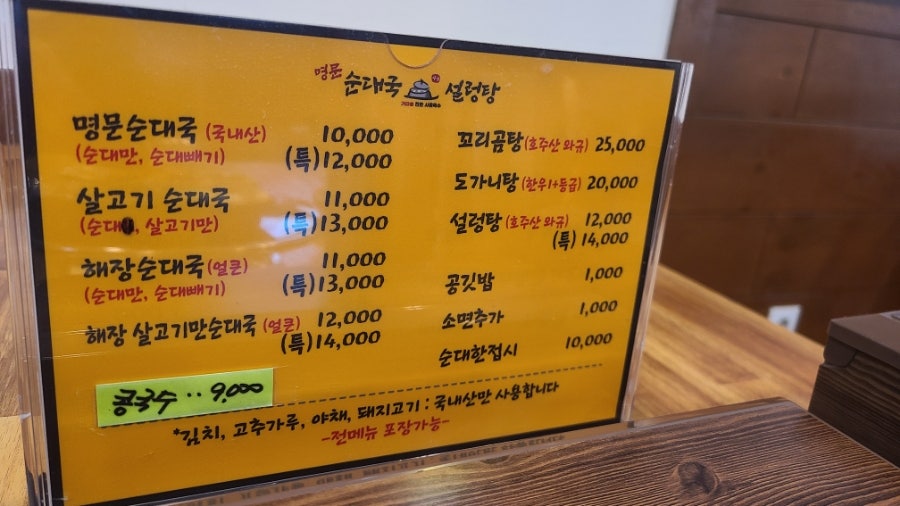 명문 순대국 설렁탕
명문순대국 (국내산) 10,000
(순대만, 순대빼기) (특)12,000
살고기 순대국 11,000
(순대, 살고기만) (특)13,000
해장순대국 (얼큰) 11,000
(순대만, 순대빼기) (특)13,000
해장 살고기만순대국 (얼큰) 12,000
(특)14,000
콩국수 ‥ 9,000
꼬리곰탕 (호주산 와규) 25,000
도가니탕 (한우1+등급) 20,000
설렁탕 (호주산 와규) 12,000
(특) 14,000
공깃밥 1,000
소면추가 1,000
순대한접시 10,000
*김치, 고추가루, 야채, 돼지고기 : 국내산만 사용합니다
-전메뉴 포장가능-